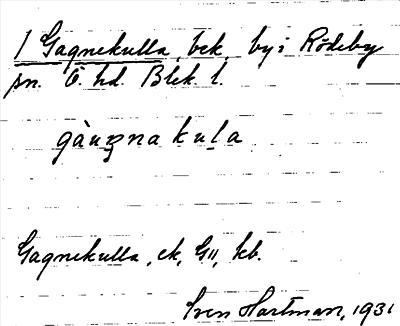 1 Gagnekulla, bck, by i Rödeby
sn. Ö. hd. Blek. l.
Gagnekulla, ek, G11, kb.
Sven Hartman, 1931